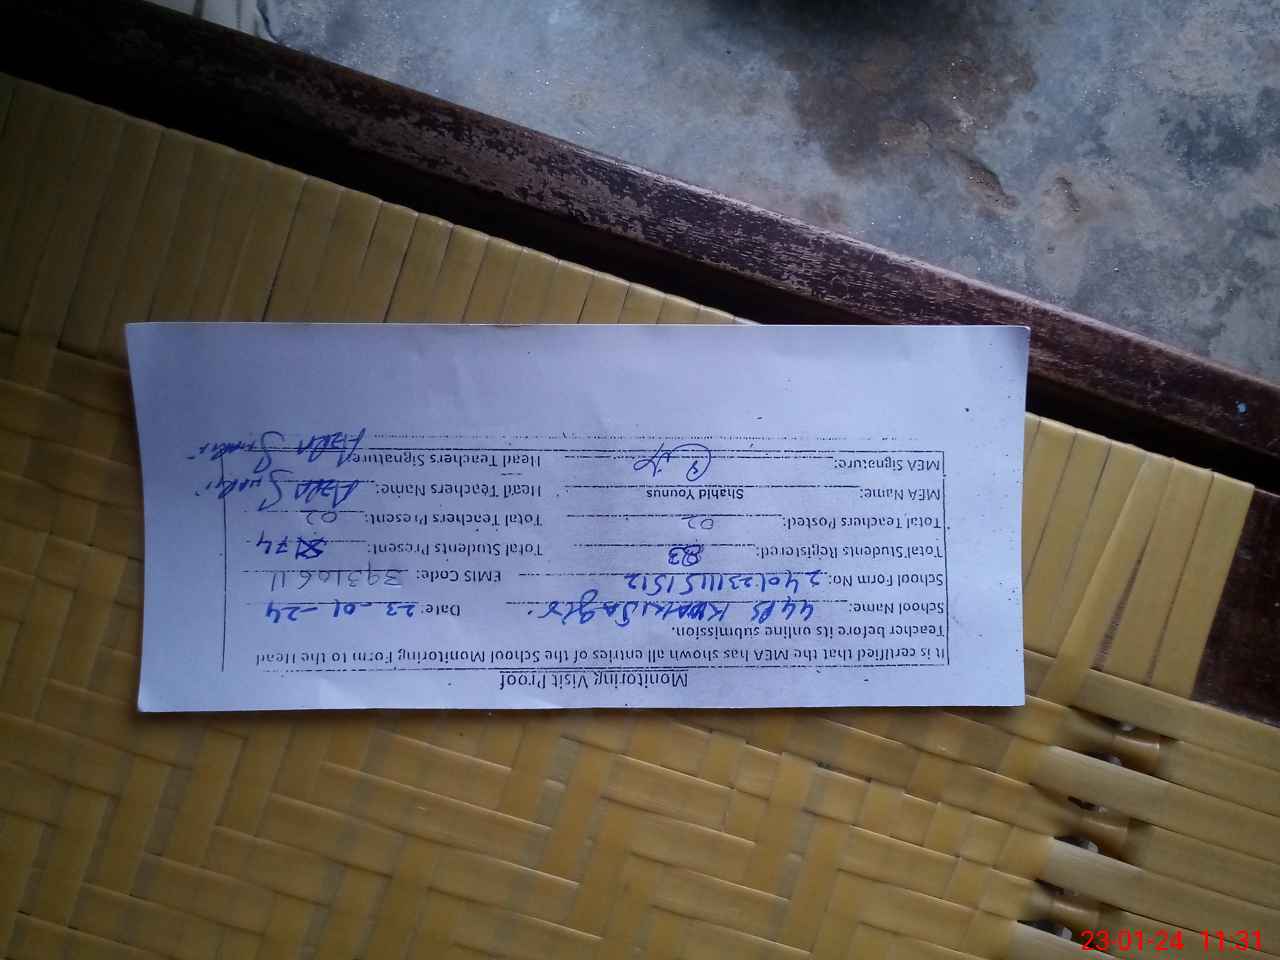 Monitoring Visit Proof
It is certified that the MEA has shown all entries of the School Monitoring Form to the Head
Teacher before its online submission.
School Name: Date: 23-01-24
School Form No: 24012311151512 EMIS Code:
Total Students Registered: 83 Total Students Present: 74
Total Teachers Posted: 02 Total Teachers Present: 02
MEA Name: Shahid Younus Head Teachers Name:
MEA Signature: Head Teachers Signature
23-01-24 11:31